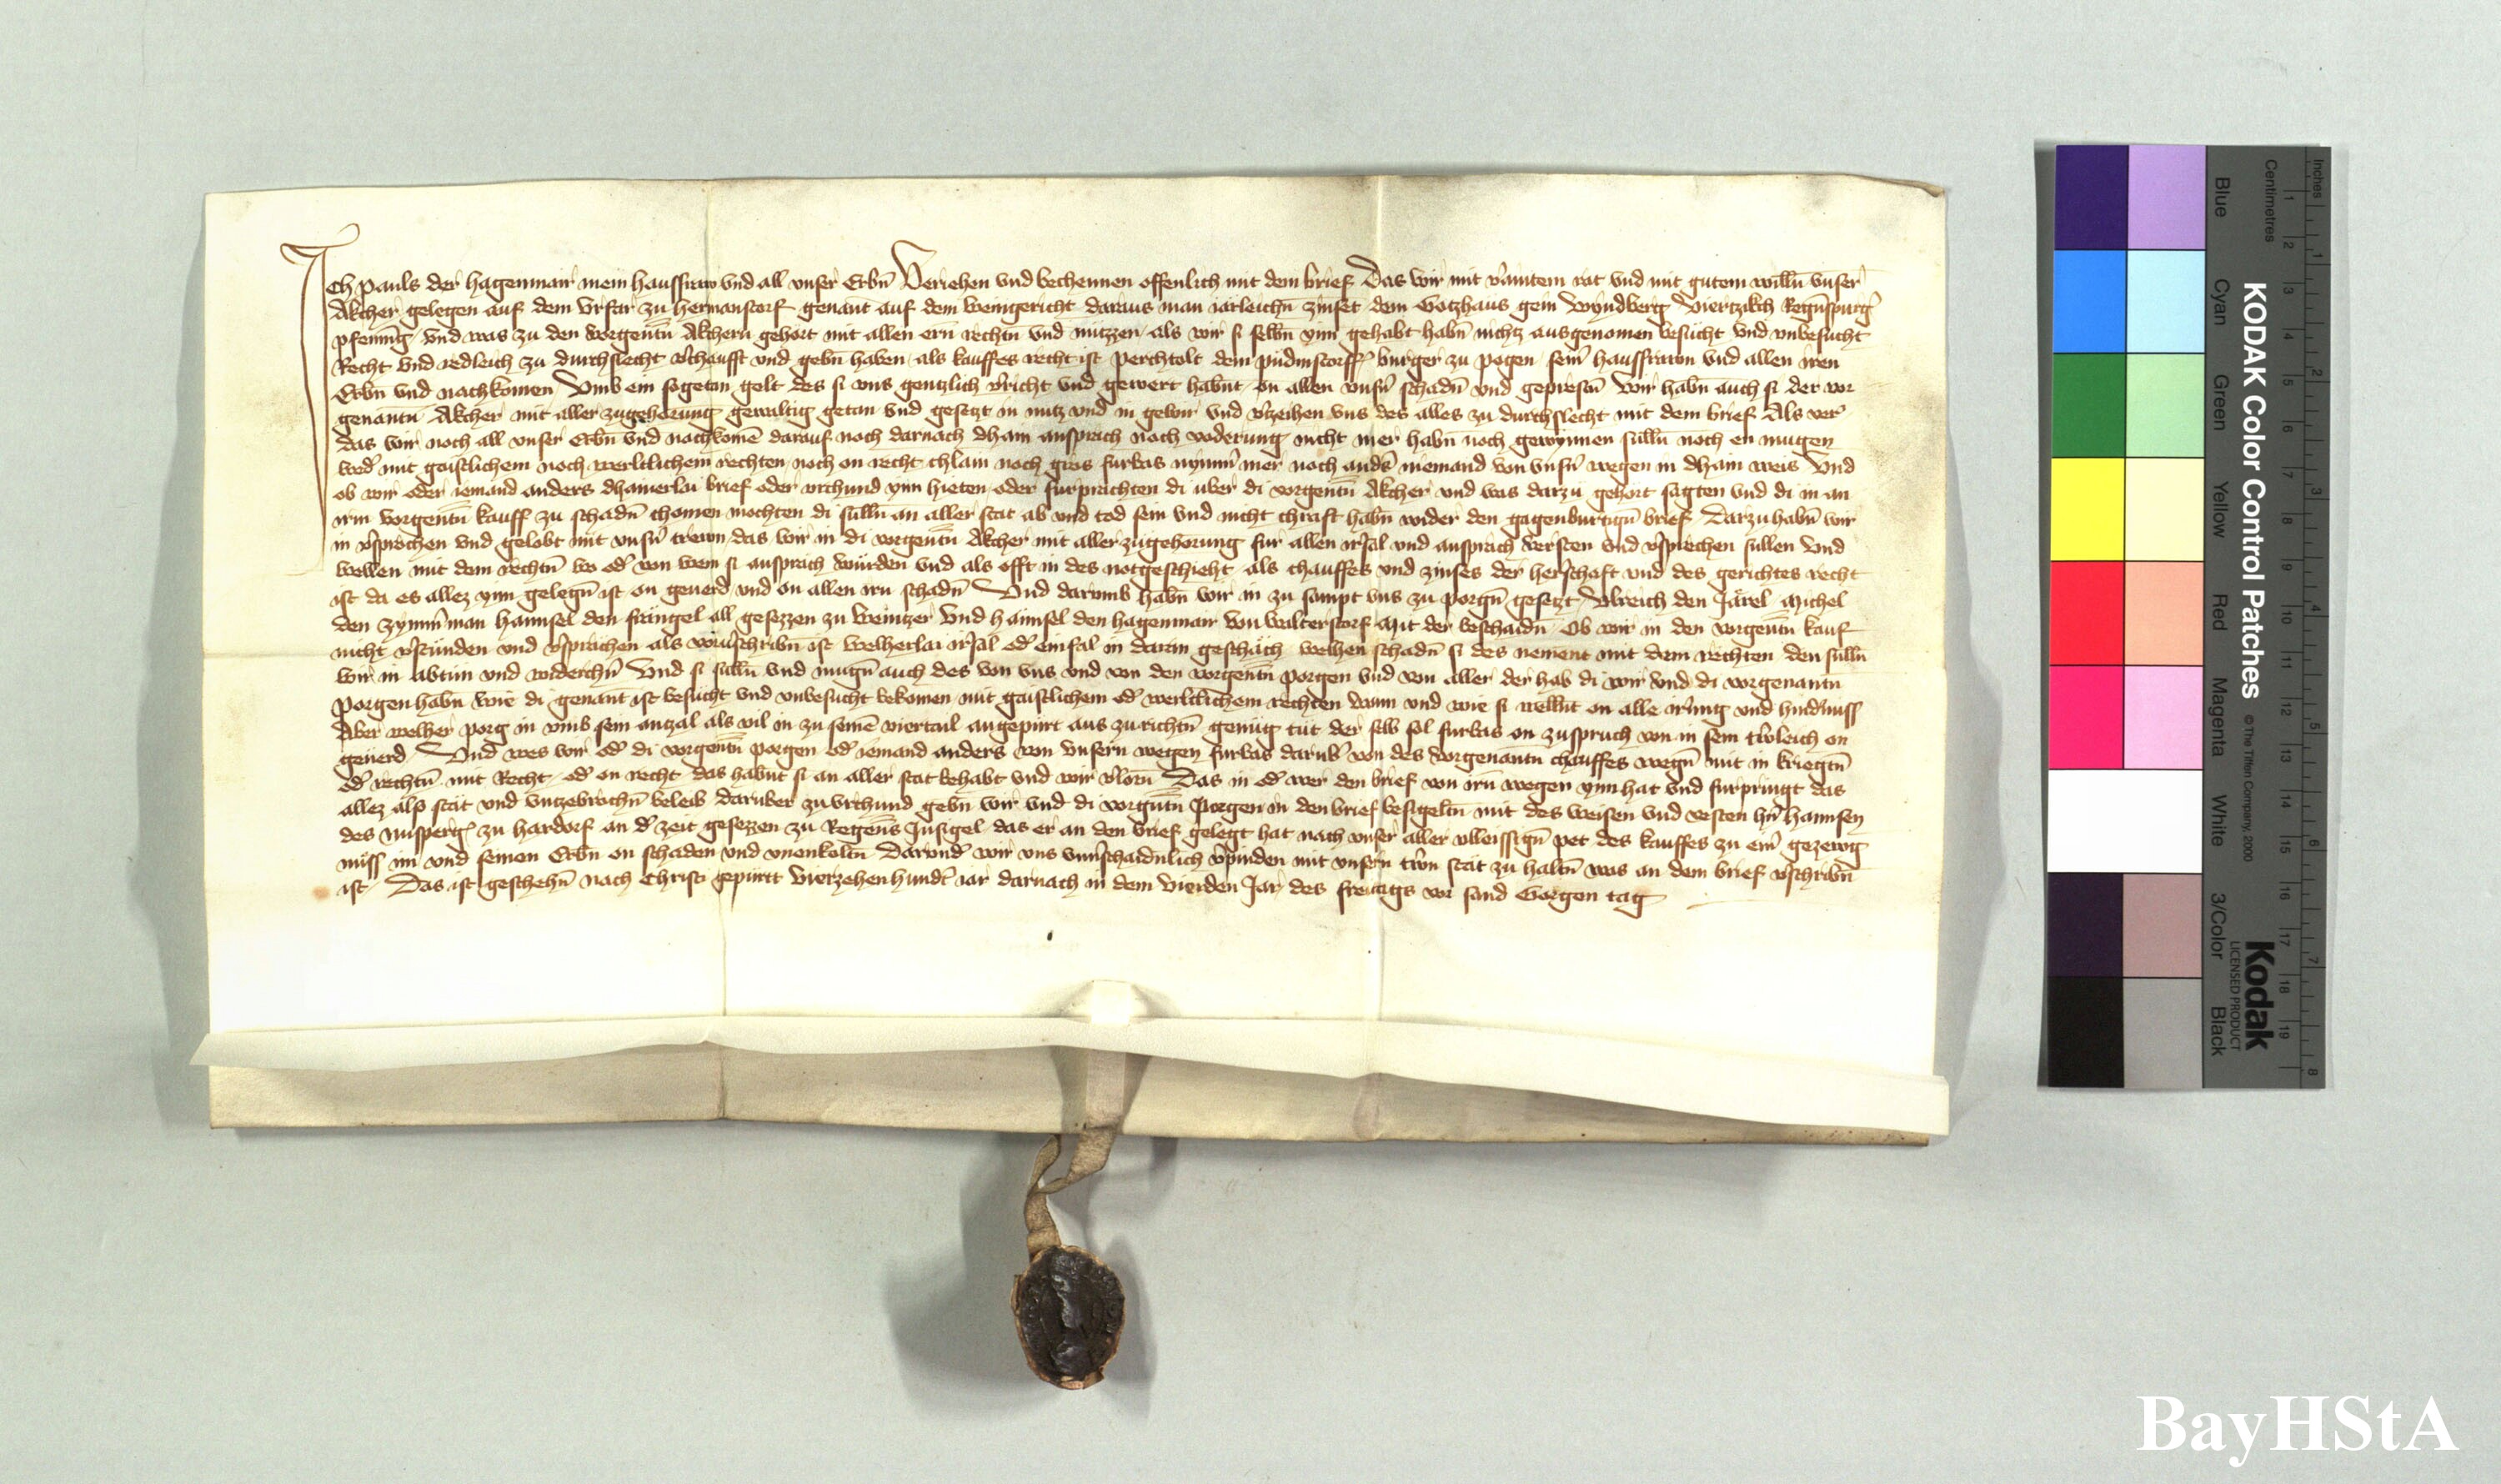 Ich Pauls der hagenmair mein hausfraw vnd all vnser Erbn̄ Veriehen vnd bechennen offenlich mit dem brief Das wir mit v̓aintem rat vnd mit gutem willn̄ vnser
Akcher gelegen auf dem Vrfar zu hermanstorf genant auf dem weingericht daraus man iarleichn̄ zinset dem Gotzhaus gein Wyndberg Viertzikch Regn̄spurg̓
pfennīg vnd was zu den vorgentn̄ Akchern gehort mit allen ern rechtn̄ vnd nutzzen als wir si selbn̄ ynn gehabt habn̄ nichtz ausgenomen besucht vnd vnbesucht
Recht vnd redleich zu durchslecht v̓chaufft vnd gebn̄ haben als kauffes recht ist Perchtolt dem pudmstorff̓ burger zu pogen sein̓ hausfrawn vnd allen iren
Erbn̄ vnd nachkomen Vmb ein sogetan gelt des si vns gentzlich v̓richt vnd gewert habnt on allen vnsn̓ schadn̄ vnd geprestn̄ Wir habn̄ auch si der vor
genantn̄ Akcher mit aller zugehorung gewaltig getan vnd gesetzt in nutz vnd in gewer vnd v̓zeihen vns des alles zu durchslecht mit dem brief Als ver
das wir noch all vnser Erbn̄ vnd nachkomē darauf noch darnach dhain ansprach noch voderung nicht mer habn̄ noch gewynnen sulln̄ noch en mugen
wed̓ mit gaistlichem noch werltlichem rechten noch on recht chlain noch gros furbas nymm̓ mer noch and̓s niemand von vnsn̓ wegen in dhain weis Vnd
ob wir oder iemand anders dhainerlai brief oder vrchund ynn hieten oder furprachten di uber di vorgentn̄ Akcher vnd was darzu gehort sagten vnd di in an
irm vorgentn̄ kauff zu schadn̄ chomen mochten di sulln̄ an aller stat ab vnd tod sein vnd nicht chraft habn̄ wider den gagenburtign̄ brief Darzu habn̄ wir
in v̓sprochen vnd gelobt mit vnsn̓ trewn das wir in di vorgentn̄ Akcher mit aller zugehorung fur allen irsal vnd ansprach versten vnd v̓sprechen sullen Vnd
wellen mit dem rechtn̄ wo od̓ von wem si ansprach wurden vnd als offt in des notgeschieht als chauffes vnd zinses der herschaft vnd des gerichtes recht
ist da es allez ynn gelegn̄ ist on geuerd vnd on allen irn schadn̄ Vnd darumb habn̄ wir in zu sampt vns zu porgn̄ gesetzt Vlreich den Järel Michel
den zymm̓man Hannsel den främgel all gesezzen zu weintzer Vnd Hännsel den hagenmair von walterstorf Mit der beschaidn̄ Ob wir in den vorgentn̄ kauf
nicht v̓stünden vnd v̓sprächen als vorv̓schribn̄ ist welherlai irsal od̓ einfal in darin geschäch welhen schadn̄ si des nement mit dem rechten den sulln̄
wir in abtün vnd widerchn̄ Vnd si sulln̄ vnd mugn̄ auch des von vns vnd von den vorgentn̄ porgen vnd von aller der hab di wir vnd di vorgenantn̄
Porgen habn̄ wie di genant ist besucht vnd vnbesucht bekomen mit gaistlichem od̓ werltlichem rechten wann vnd wie si wellnt on alle irrung vnd hind̓nüss
Aber welher porg in vmb sein antzal als vil in zu seinē viertail angepürt aus zu richtn̄ genüg tüt der selb sol furbas on zuspruch von in sein trewleich on
geuerd Vnd wes wir od̓ di vorgentn̄ porgen od̓ iemand anders von vnsern wegen furbas daruber von des vorgenantn̄ chauffes wegn̄ mit in kriegtn̄
od̓ rechtn̄ mit Recht od̓ on recht das habnt si an aller stat behabt vnd wir v̓lorn Das in od̓ wer den brief von irn wegen ynn hat vnd furpringt das
allez also stät vnd vntzebrochn̄ beleib daruber zu vrchund gebn̄ wir vnd di vorgntn̄ Porgen in den brief besigeltn̄ mit des weisen vnd vesten hn̓ Hannsen
des nusperg̓ zu hardorf an d̓ zeit gesezzen zu Regens̄ Insigel das er an den brief gelegt hat nach vnser aller vlleissign̄ pet des kauffes zu ein̓ gezewg
nüss im vnd seinen Erbn̄ on schaden vnd vnenkoltn̄ Darund̓ wir vns vnu̓schaidnlich v̓pinden mit vnsern trewn stät zu haltn̄ was an dem brief v̓schribn̄
ist Das ist geschehn̄ nach Christi gepürt Vierzehenhundt̓ iar darnach in dem Vierden Jar des freitags vor sand Gorgen tag
Inches
Centimetres
1 2 3 4 5 6 7 8
1 2 3 4 5 6 7 8 9 10 11 12 13 14 15 16 17 18 19
KODAK Color Control Patches
© The Tiffen Company, 2000
Kodak
LICENSED PRODUCT
Blue Cyan Green Yellow Red Magenta White 3/Color Black
BayHStA